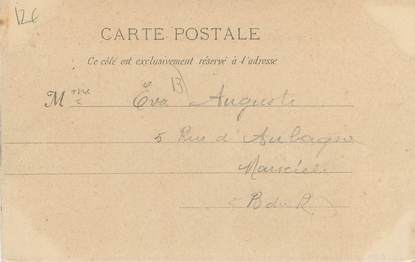 12€
CARTE POSTALE
Ce côté est exclusivement réservé à l'adresse
13
Mme Eva Auguste
5 Rue d'Aubagne
Marseille
B du R